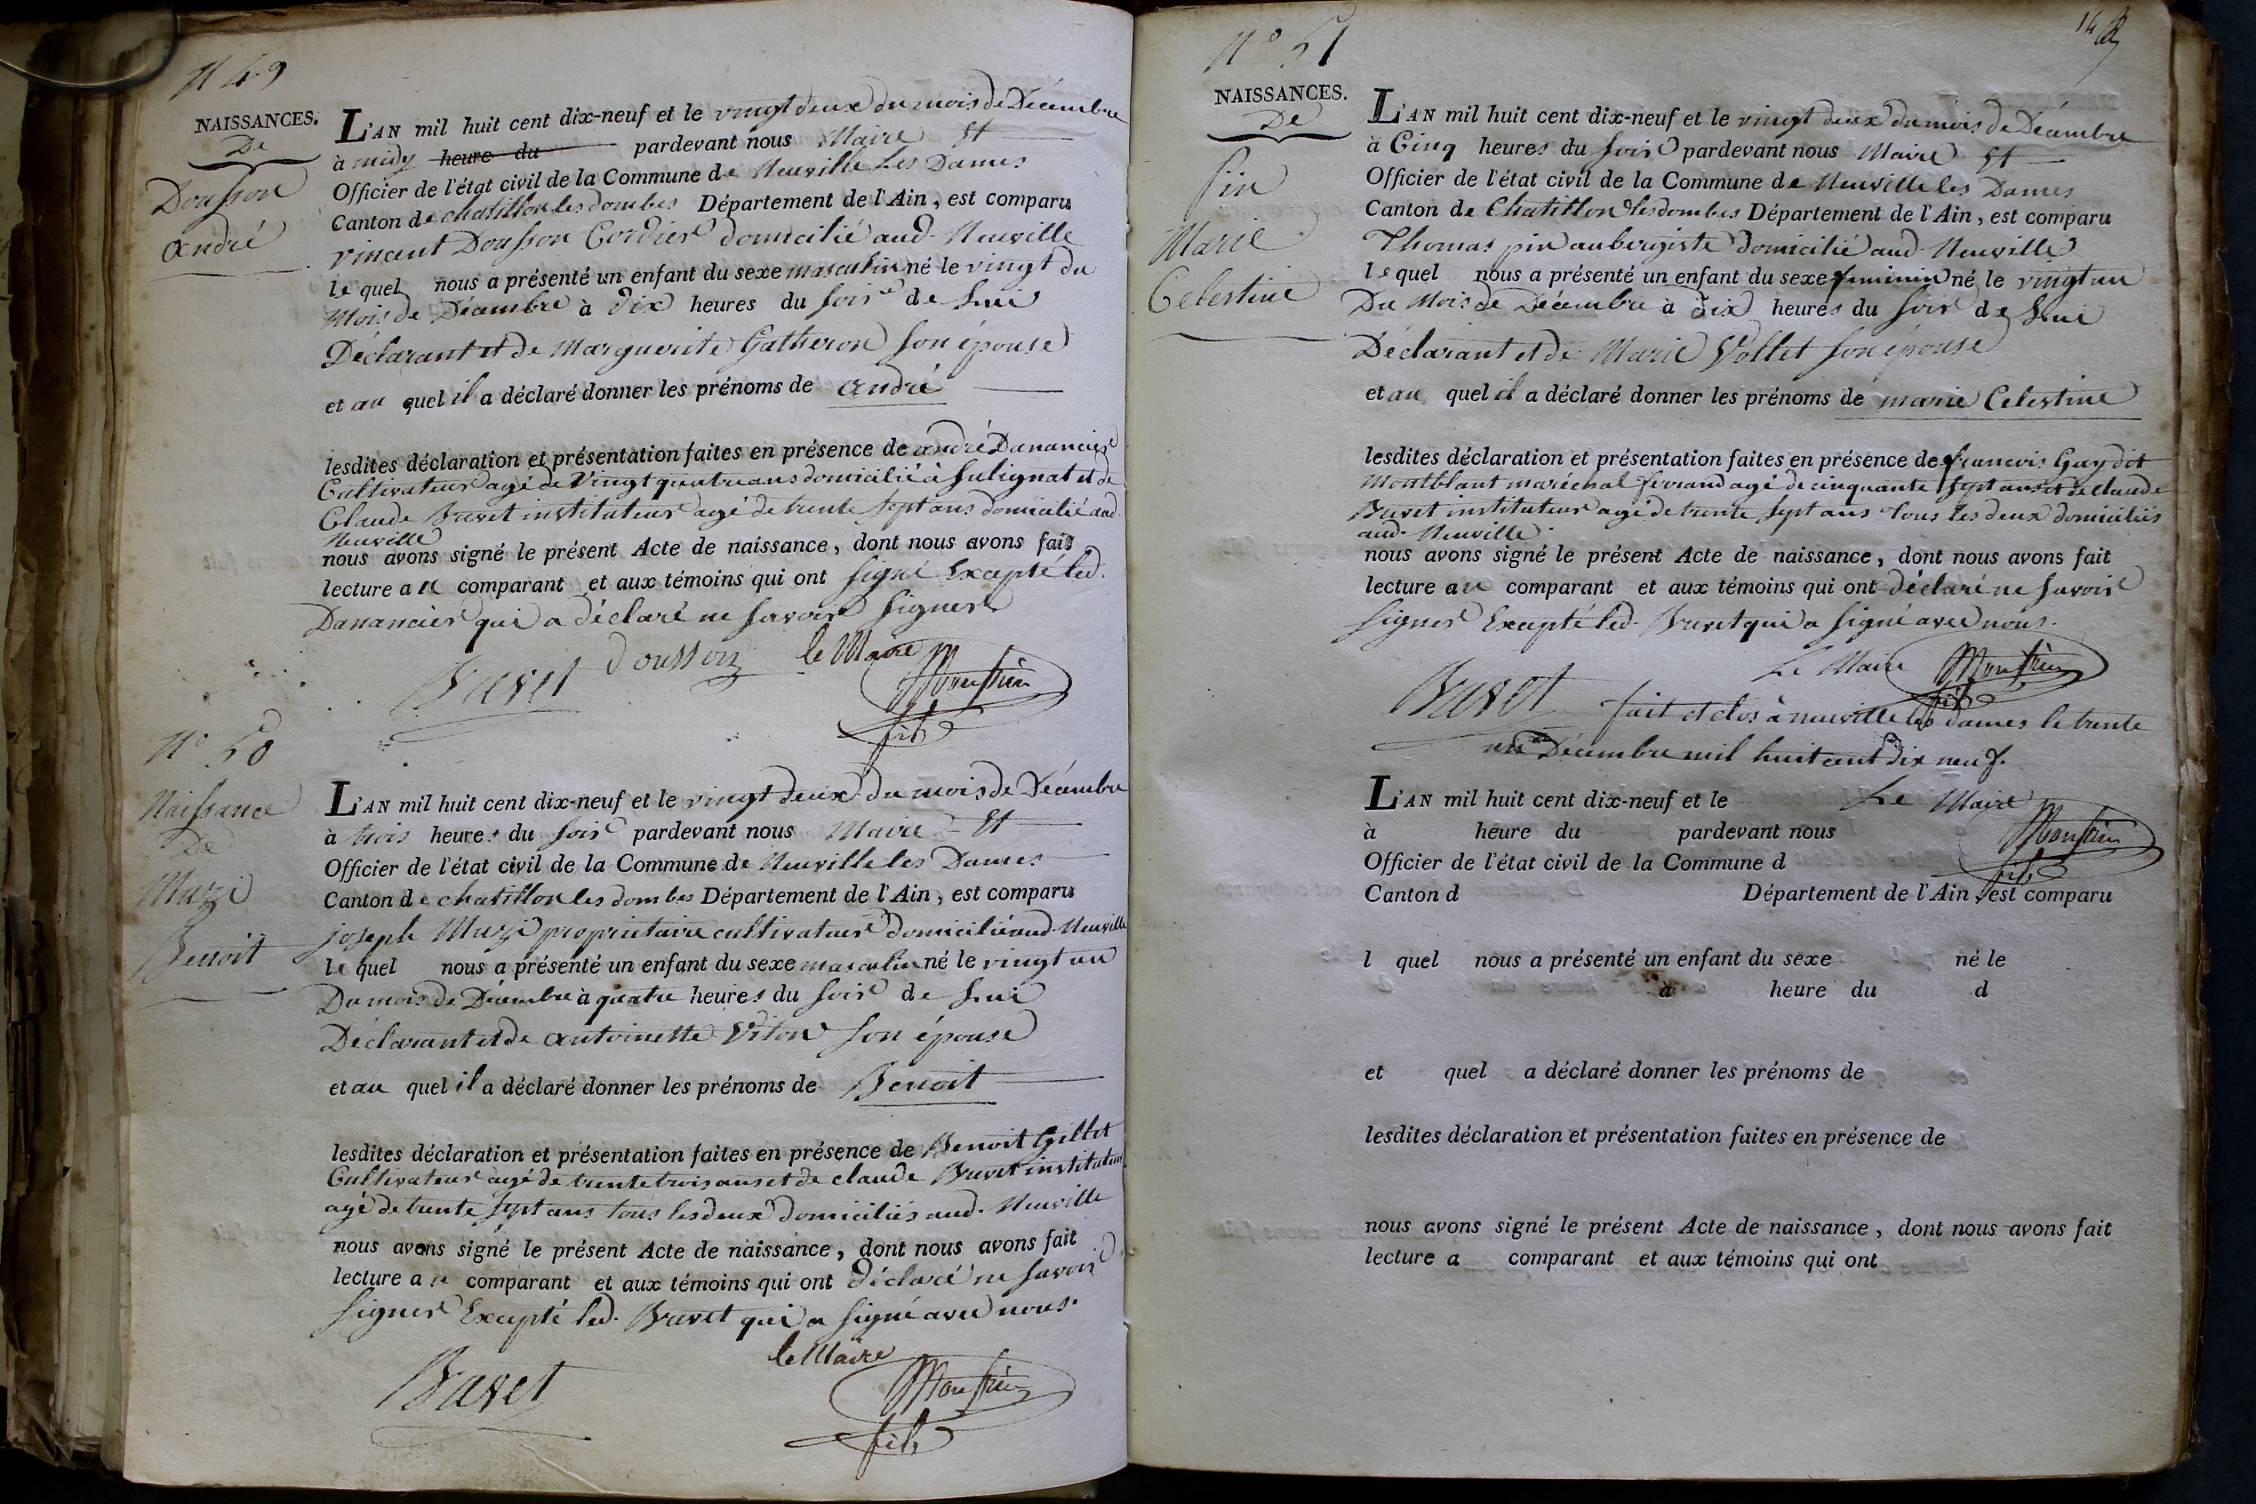 N 49
NAISSANCES.
De
Dousson
andré
L'AN mil huit cent dix-neuf et le vingt deux du mois de Décembre
à midy heure du pardevant nous Maire Et
Officier de l'état civil de la Commune de Neuville Les Dames
Canton de chatillon les dombes Département de l'Ain, est comparu
vincent Dousson Cordier domicilié aud. Neuville
le quel nous a présenté un enfant du sexe masculin né le vingt du
Mois de Décembre à dix heures du soir de Lui
Déclarant et de Marguerite Gatheron son épouse
et au quel il a déclaré donner les prénoms de andré
lesdites déclaration et présentation faites en présence de andré Danancier
Cultivateur agé de vingt quatre ans domicilié à Sulignat et de
Claude Buvet instituteur agé de trente sept ans domicilié aud.
Neuville
nous avons signé le présent Acte de naissance, dont nous avons fait
lecture au comparant et aux témoins qui ont signé Excepté led.
Danancier qui a déclaré ne savoir signer
Buvet dousson le Maire
fils
N° 50
Naissance
De
Muzi
Benoit
L'AN mil huit cent dix-neuf et le vingt deux du mois de Décembre
à trois heures du soir pardevant nous Maire Et
Officier de l'état civil de la Commune de Neuville les Dames
Canton de chatillon les dombes Département de l'Ain, est comparu
joseph Muzi propriétaire cultivateur domicilié aud. Neuville
le quel nous a présenté un enfant du sexe masculin né le vingt un
Du mois de Décembre à quatre heures du soir de Lui
Déclarant et de antoinette Viton son épouse
et au quel il a déclaré donner les prénoms de Benoit
lesdites déclaration et présentation faites en présence de Benoit Gillet
Cultivateur agé de trente trois ans et de claude Buvet instituteur
agé de trente sept ans tous les deux domiciliés aud. Neuville
nous avons signé le présent Acte de naissance, dont nous avons fait
lecture au comparant et aux témoins qui ont déclaré ne savoir
signer Excepté led. Buvet qui a signé avec nous.
le Maire
Buvet
fils
N° 51
NAISSANCES.
De
pin
Marie
Celestine
L'AN mil huit cent dix-neuf et le vingt deux du mois de Décembre
à Cinq heures du soir pardevant nous Maire Et
Officier de l'état civil de la Commune de Neuville les Dames
Canton de Chatillon les dombes Département de l'Ain, est comparu
Thomas pin aubergiste domicilié aud Neuville
le quel nous a présenté un enfant du sexe feminin né le vingt un
Du Mois de Décembre à dix heures du soir de Lui
Déclarant et de Marie Vollet son épouse
et au quel il a déclaré donner les prénoms de marie Celestine
lesdites déclaration et présentation faites en présence de francois Guy dit
Montblant maréchal ferrand agé de cinquante sept ans et de claude
Buvet instituteur agé de trente sept ans tous les deux domiciliés
aud. Neuville
nous avons signé le présent Acte de naissance, dont nous avons fait
lecture au comparant et aux témoins qui ont déclaré ne savoir
signer Excepté led. Buvet qui a signé avec nous.
Le Maire
fils
Buvet fait et clos à neuville les dames le trente
un Décembre mil huit cent dix neuf.
Le Maire
fils
L'AN mil huit cent dix-neuf et le
à heure du pardevant nous
Officier de l'état civil de la Commune d
Canton d Département de l'Ain, est comparu
l quel nous a présenté un enfant du sexe né le
à heure du d
et quel a déclaré donner les prénoms de
lesdites déclaration et présentation faites en présence de
nous avons signé le présent Acte de naissance, dont nous avons fait
lecture a comparant et aux témoins qui ont